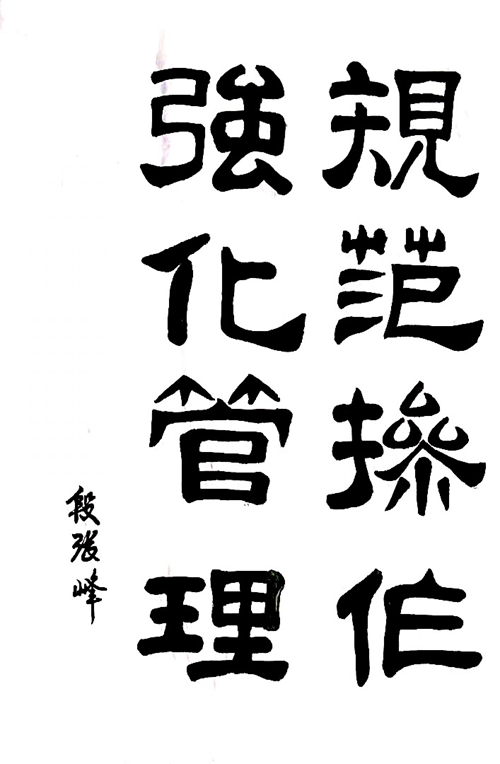 規范操作
強化管理
段張峰